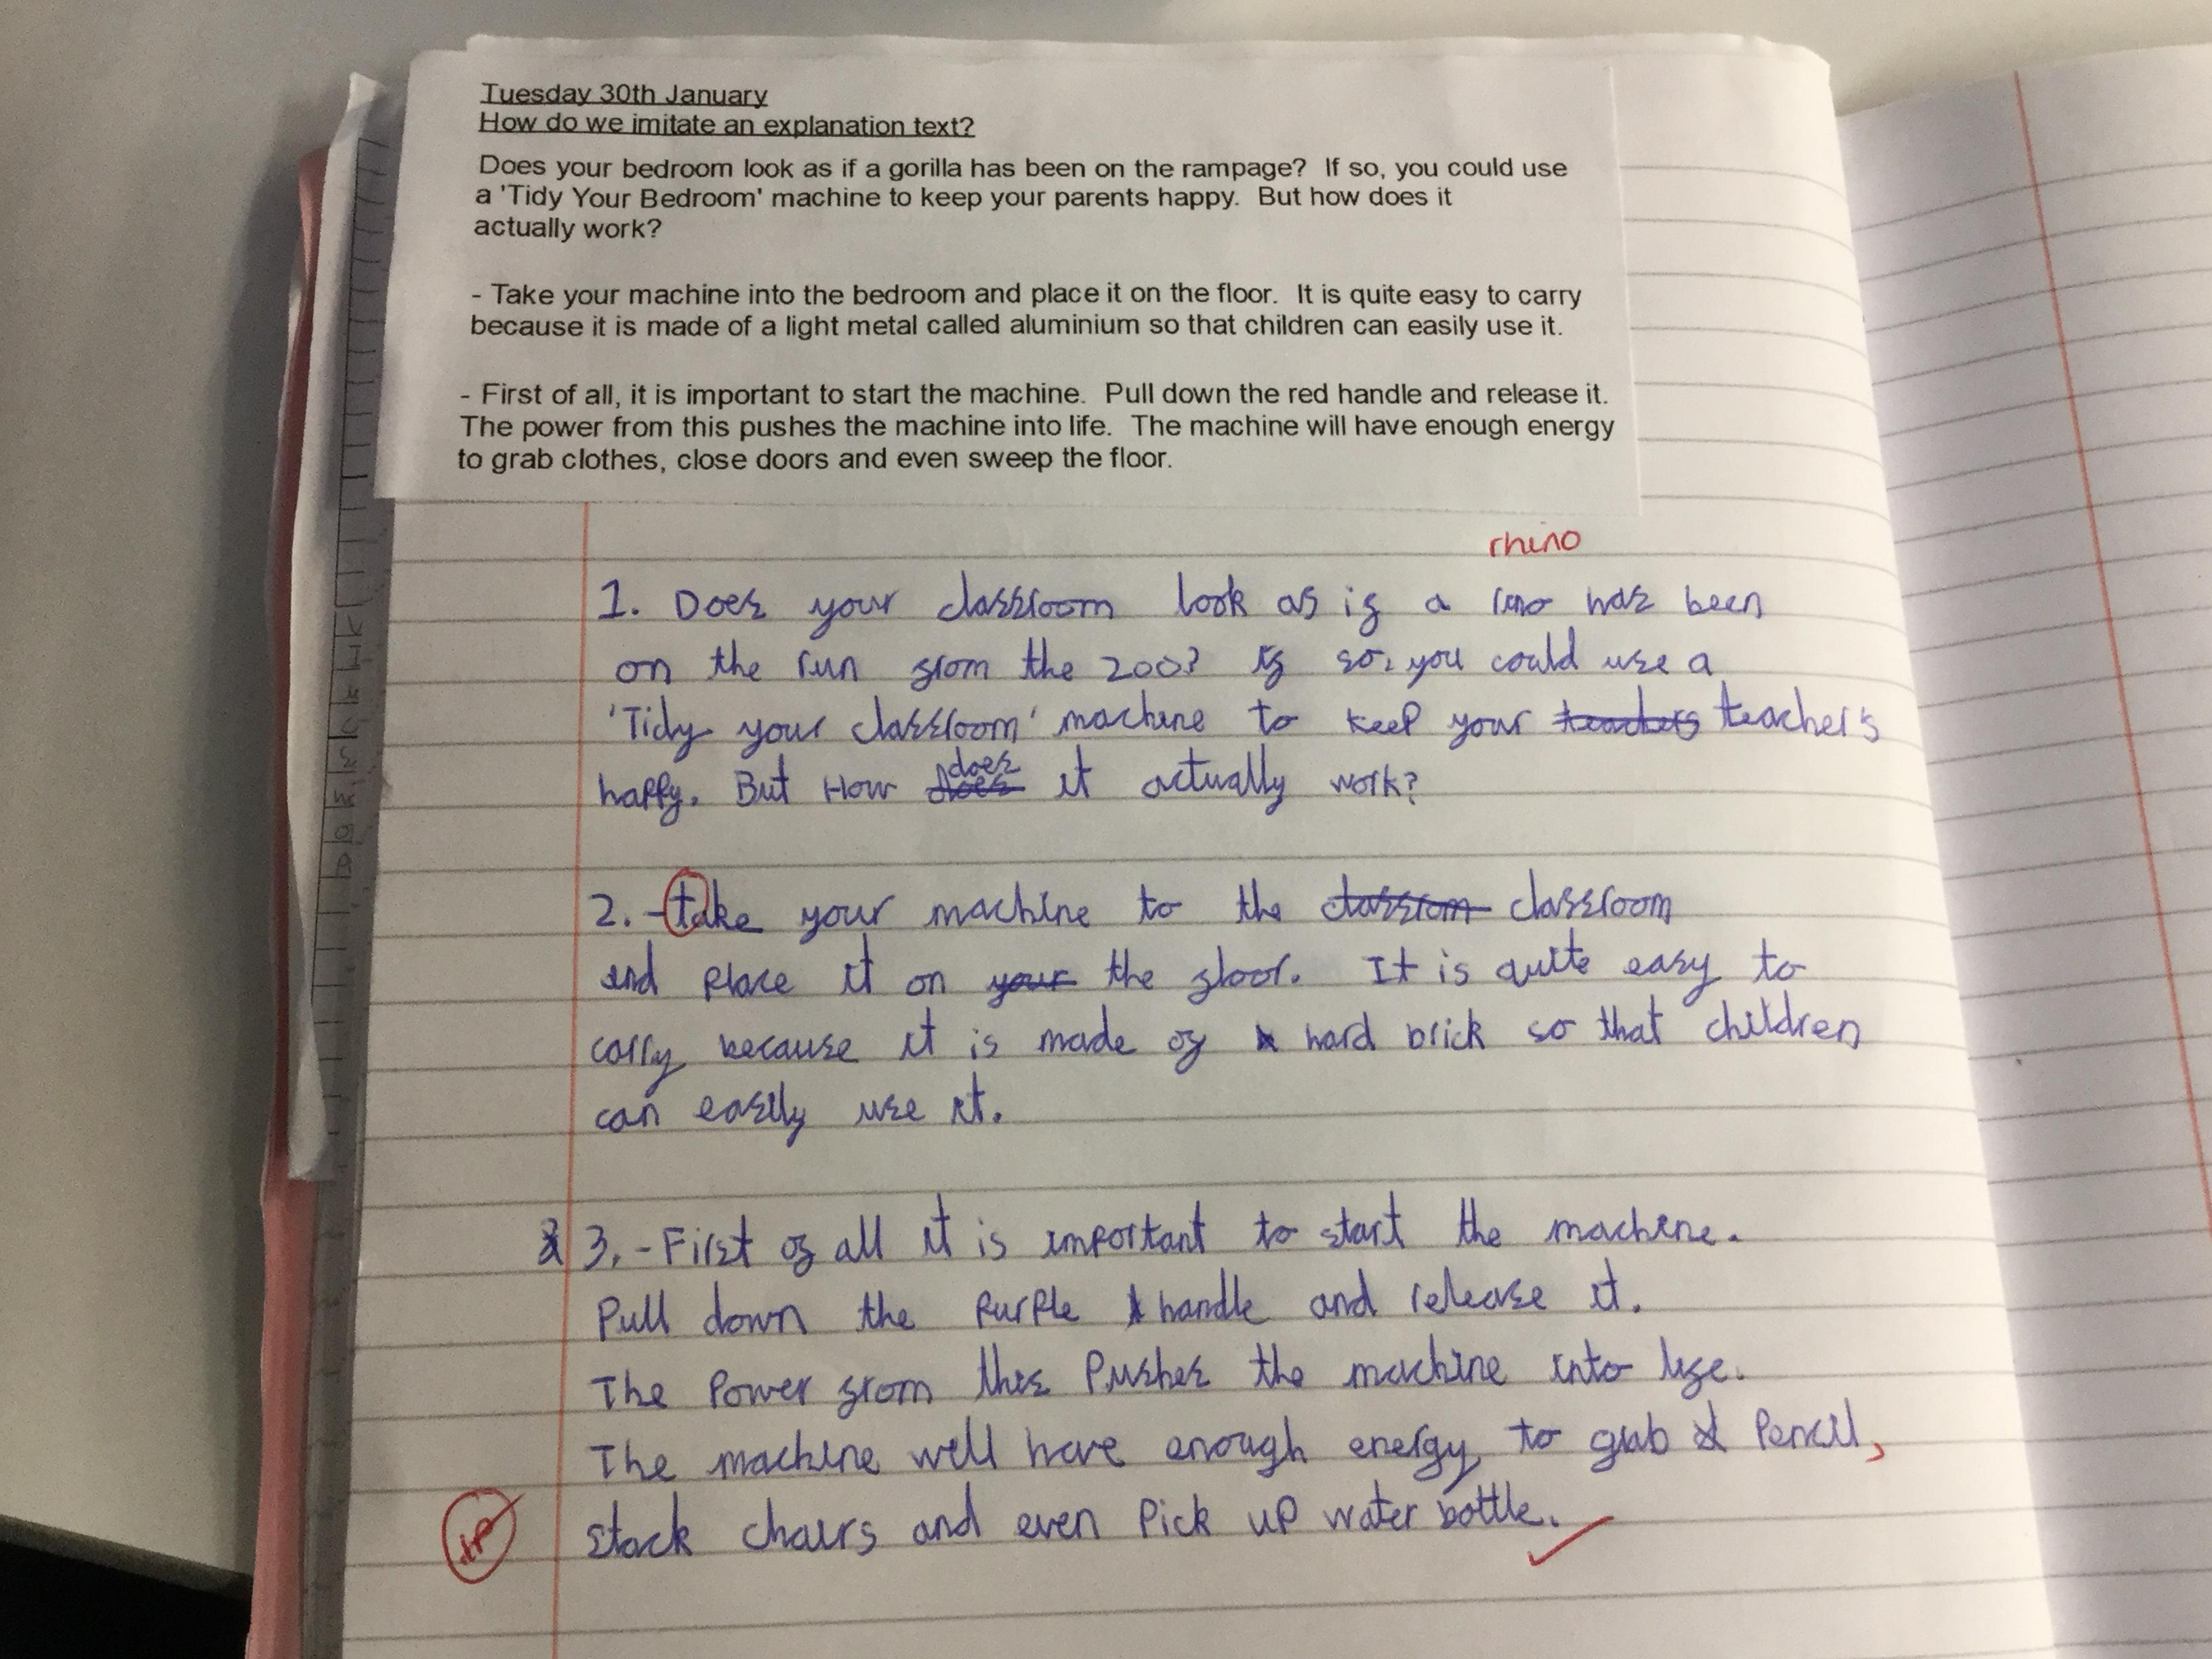 Tuesday 30th January
How do we imitate an explanation text?
Does your bedroom look as if a gorilla has been on the rampage?  If so, you could use
a 'Tidy Your Bedroom' machine to keep your parents happy.  But how does it
actually work?
- Take your machine into the bedroom and place it on the floor.  It is quite easy to carry
because it is made of a light metal called aluminium so that children can easily use it.
- First of all, it is important to start the machine.  Pull down the red handle and release it.
The power from this pushes the machine into life.  The machine will have enough energy
to grab clothes, close doors and even sweep the floor.
rhino
1. Does your classroom look as if a rino has been
on the run from the zoo? If so, you could use a
'Tidy your classroom' machine to keep your teachers teacher's
happy. But How does does it actually work?
2. -take your machine to the classrom classroom
and place it on your the floor. It is quite easy to
carry because it is made of hard brick so that children
can easily use it.
3. -First of all it is important to start the machine.
Pull down the purple handle and release it.
The Power from this Pushes the machine into life.
The machine will have enough energy to grab Pencil,
stack chairs and even Pick up water bottle.